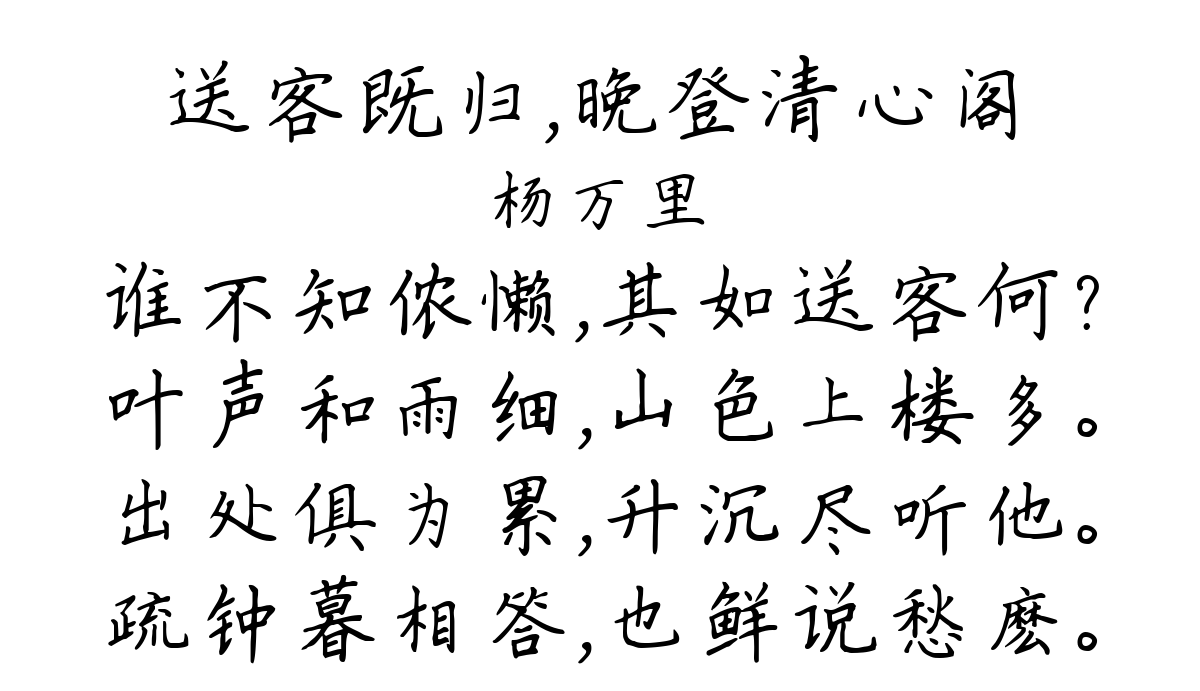 送客既归,晚登清心阁
杨万里
谁不知侬懒,其如送客何?
叶声和雨细,山色上楼多。
出处俱为累,升沉尽听他。
疏钟暮相答,也鲜说愁麽。